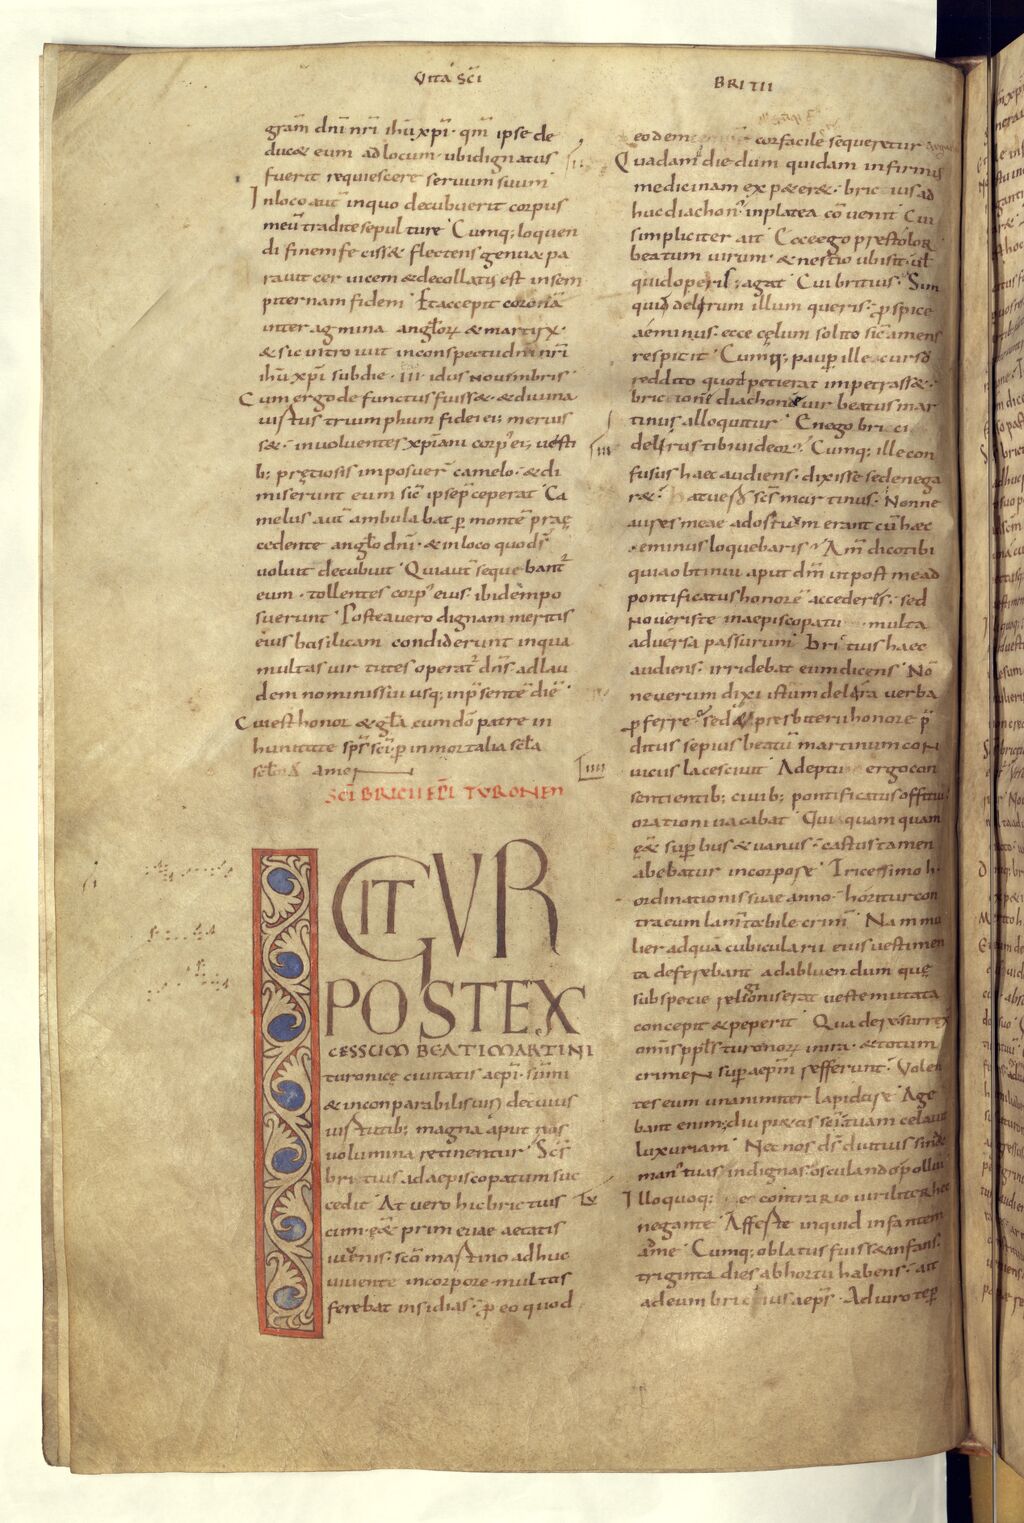 VITA SCI BRITII
gram dni nri ihu xpi · qm ipse de
duc& eum ad locum · ubi dignatus
fuerit requiescere seruum suum
In loco aut in quo decubuerit corpus
meu tradite sepulture · Cumq; loquen
di finem feciss& flectens genua pa
rauit ceruicem & decollatus est in sem
piternam fidem · Et accepit corona
inter agmina anglor & martyr ·
& sic introiuit in conspectu dni nri
ihu xpi sub die · III · idus novembris
Cum ergo defunctus fuiss& · & diuina
uirtus triumphum fidei ei; meruis
s& · inuoluentes xpiani corp' ei; uesti
b; preciosis imposuer camelo · & di
miserunt eum sic ipse pceperat · Ca
melus aut ambulabat p monte prae
cedente anglo dni · & in loco quo ds
uoluit decubuit · Qui aut sequebant
eum · tollentes corp' eius · ibidem po
suerunt · Postea uero dignam meritis
eius basilicam condiderunt in qua
multas uirtutes operat dns · ad lau
dem nominis sui usq; in psente die ·
Cui est honor & gla cum do patre in
unitate sps sci · p inmortalia scla
sclo amen
SCI BRICII EPI TURONEN
IGITUR
POST EX
CESSUM BEATI MARTINI
turonice ciuitatis aepi · sumi
& inconparabilis uiri de cuius
uirtutib; magna aput nos
uolumina retinentur · Scs
britius ad aepiscopatum suc
cedit · At uero hic brictius
cum e& primeuae aetatis
iuuenis · sco martino adhuc
uiuente in corpore · multas
ferebat insidias · p eo quod
eodem cor facile sequeretur
Quadam die dum quidam infirmus
medicinam exp&er& · bricius ad
huc diachon' in platea conuenit Cui
simpliciter ait · Ecce ego prestolor
beatum uirum · & nescio ubi sit · ul
quid operis; agat · Cui britius · Si in
quid delirum illum queris · pspice
aeminus · ecce celum solito sic amens
respicit · Cumq; paup ille occursu
reddito quod petierat impetrass& ·
bricione diachone uir beatus mar
tinus alloquitur · En ego brici
delirus tibi uideor · Cumq; ille con
fusus haec audiens · dixisse se denega
r& · at uers scs martinus · Nonne
aures meae ad os tuum erant cu haec
eminus loquebaris · Am dico tibi
quia obtinui aput dm ut post me ad
pontificatus honore accederes · sed
noueris te in aepiscopatu multa
aduersa passurum · Britius haec
audiens · irridebat eum dicens · No
ne uerum dixi istum delira uerba
pferre · sed & presbiterii honore p
ditus sepius beatu martinum con
uicus lacesciuit · Adeptu ergo con
sentientib; ciuib; pontificatus offitiu
orationi uacabat · Quia quamquam
e& supbus & uanus · castus tamen
abebatur in corpore · Tricesimo h
ordinationis suae anno · horitur con
tra eum lamtabile crim · Nam mu
lier ad qua cubicularii eius uestimen
ta deferebant ad abluendum que
sub specie religionis erat ueste mutata
concepit & peperit · Qua de re surrex
omis ppls turonor in ira · & totum
crimen sup aepm refferunt · Volen
tes eum unanimiter lapidare · Age
bant enim; diu pi&as sci tuam celauit
luxuriam · Nec nos ds diutius sinit
man' tuas indignas osculando pollui
Illo quoq; e contrario uiriliter hec
negante · Afferte inquid infantem
a me · Cumq; oblatus fuiss& infans
triginta dies ab hortu habens · ait
ad eum bricius aeps · Adiuro te p